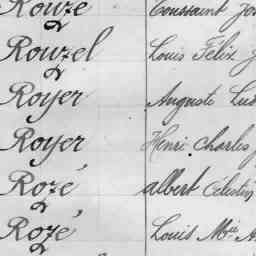 Rouzé Toussaint Jo
Rouzel Louis Félix J
Royer Auguste Lud
Royer Henri Charles
Rozé albert Célestin
Rozé Louis Mie A